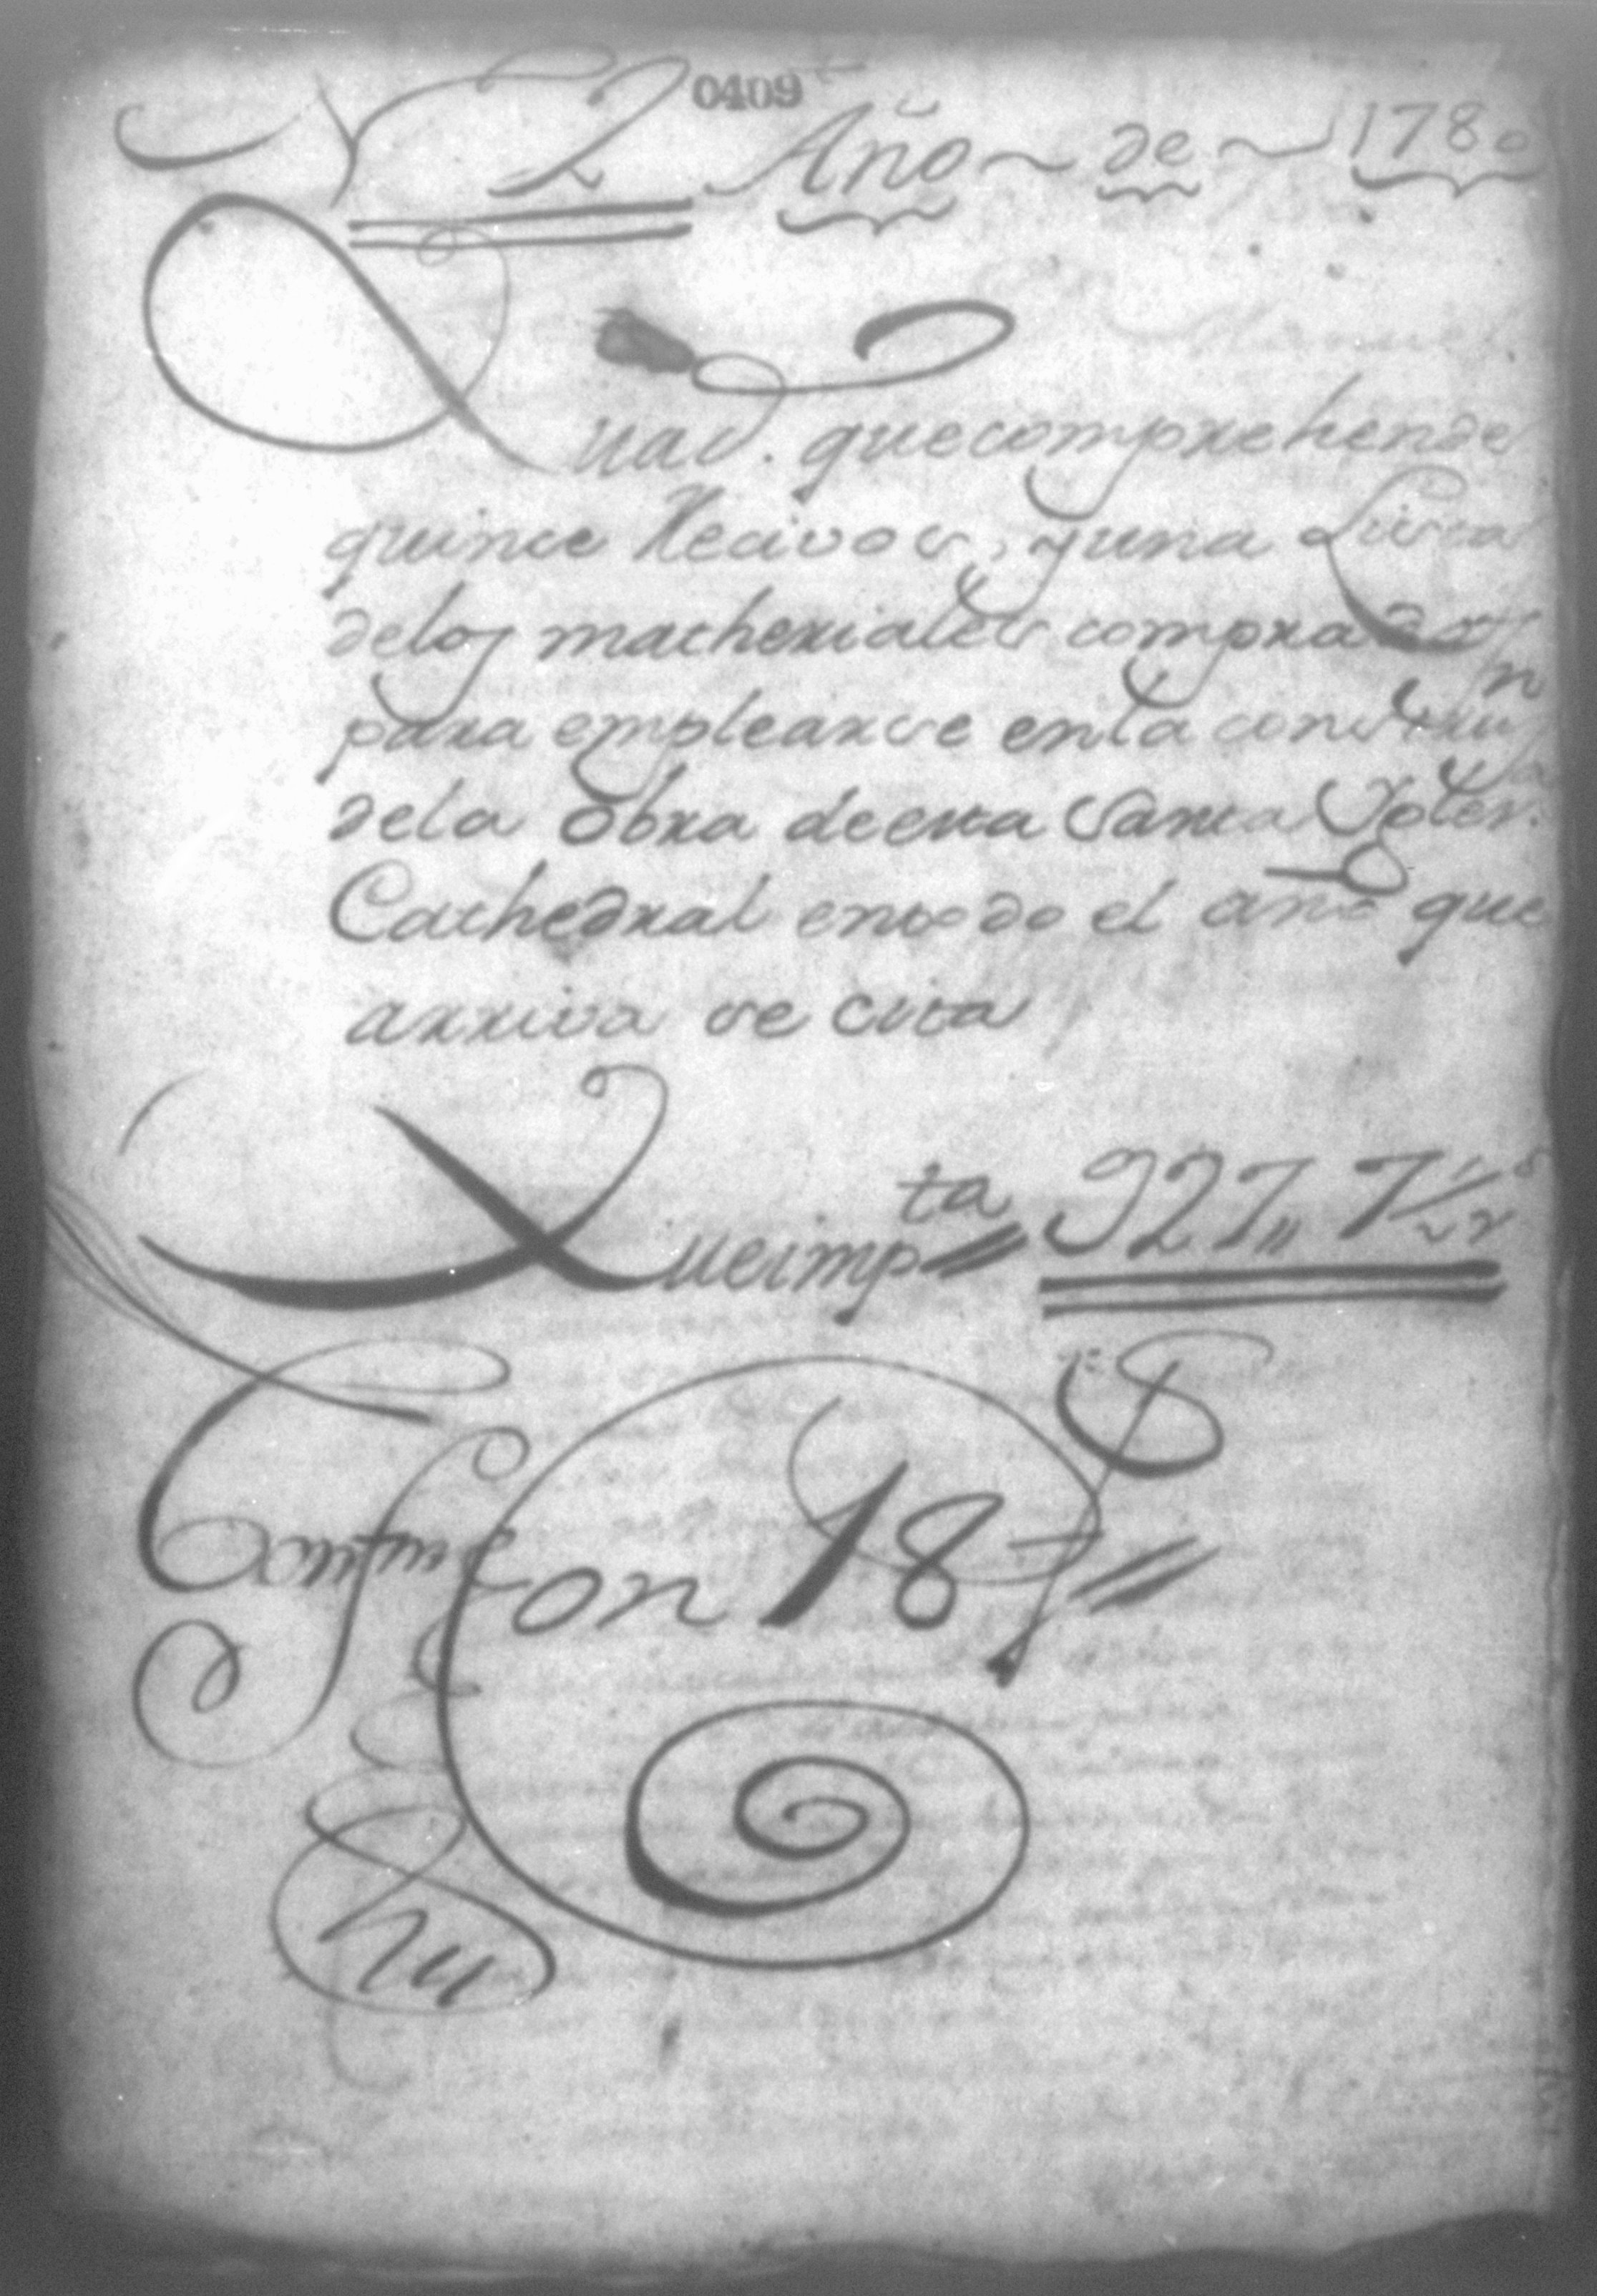 0409
N 2 Año de 1780
Quad. que comprehende
quince Recivos, y una Lista
delos matheriales comprados
para emplearse enla construn
dela obra deesta Santa Ygles.ª
Cathedral entodo el año que
arriva se cita
Queimpta 927,, 7 1/2 rs
on 18